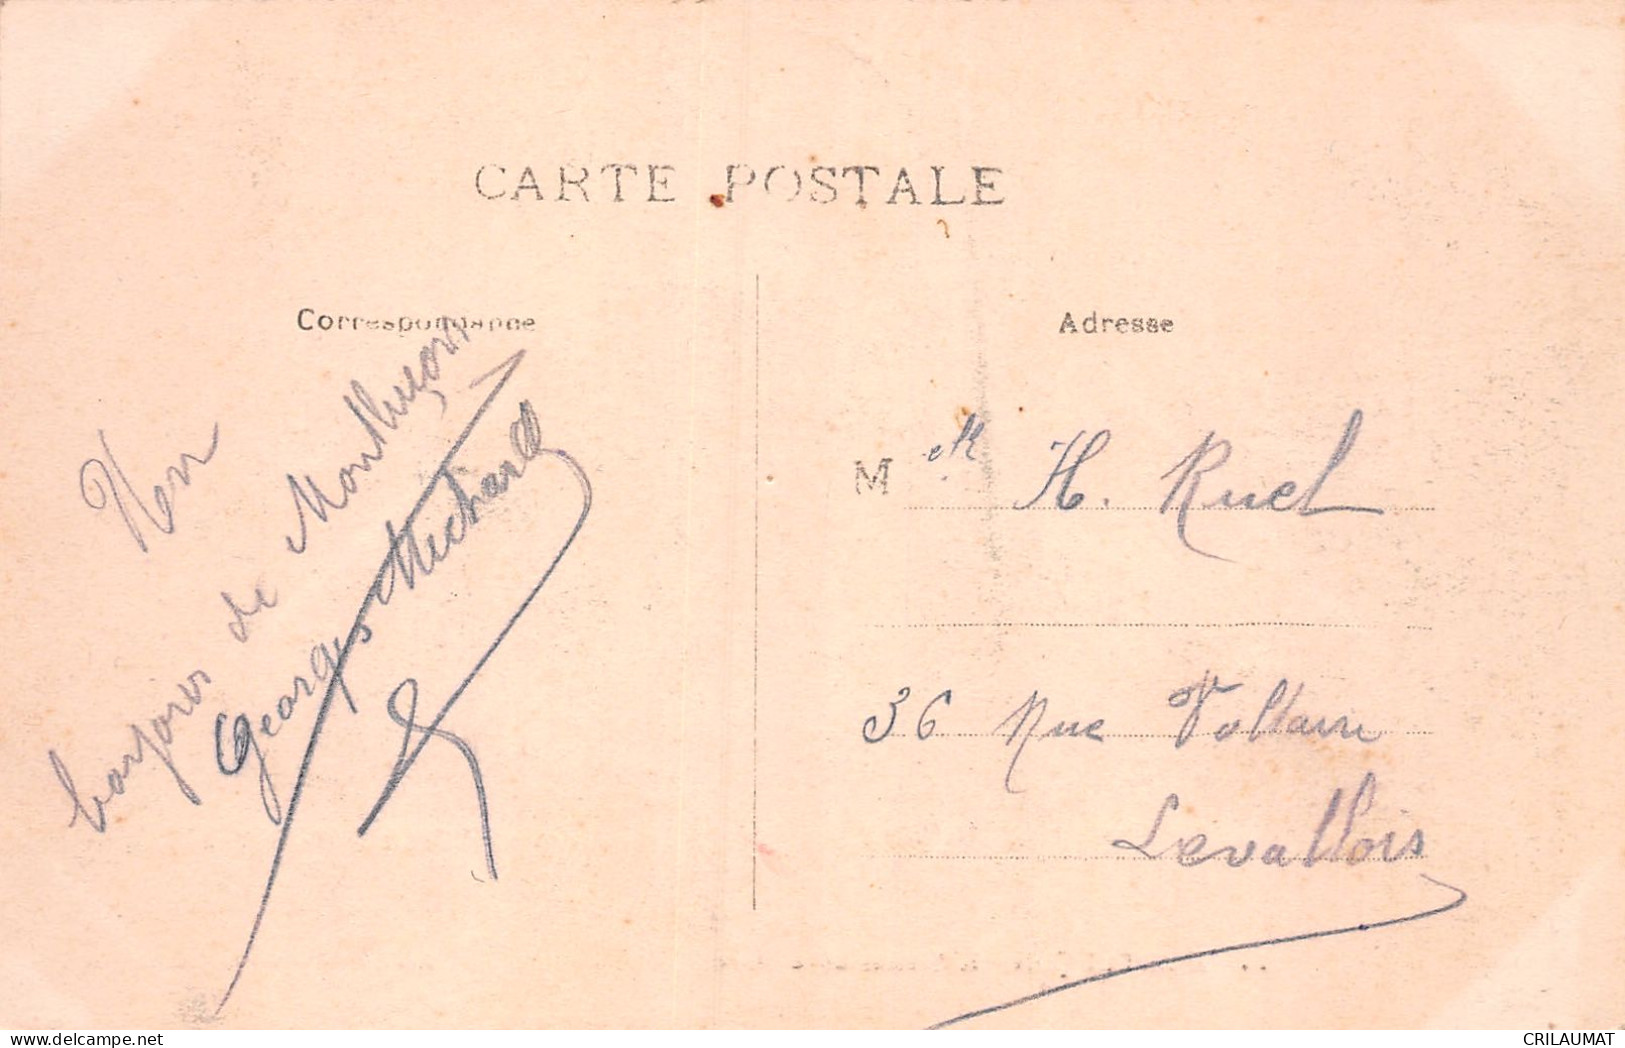 CARTE POSTALE
Correspondance
Adresse
bonjour de Montluçon
Georges Michard
M elle H. Ruel
36 Rue Voltaire
Levallois
delcampe.net
CRILAUMAT